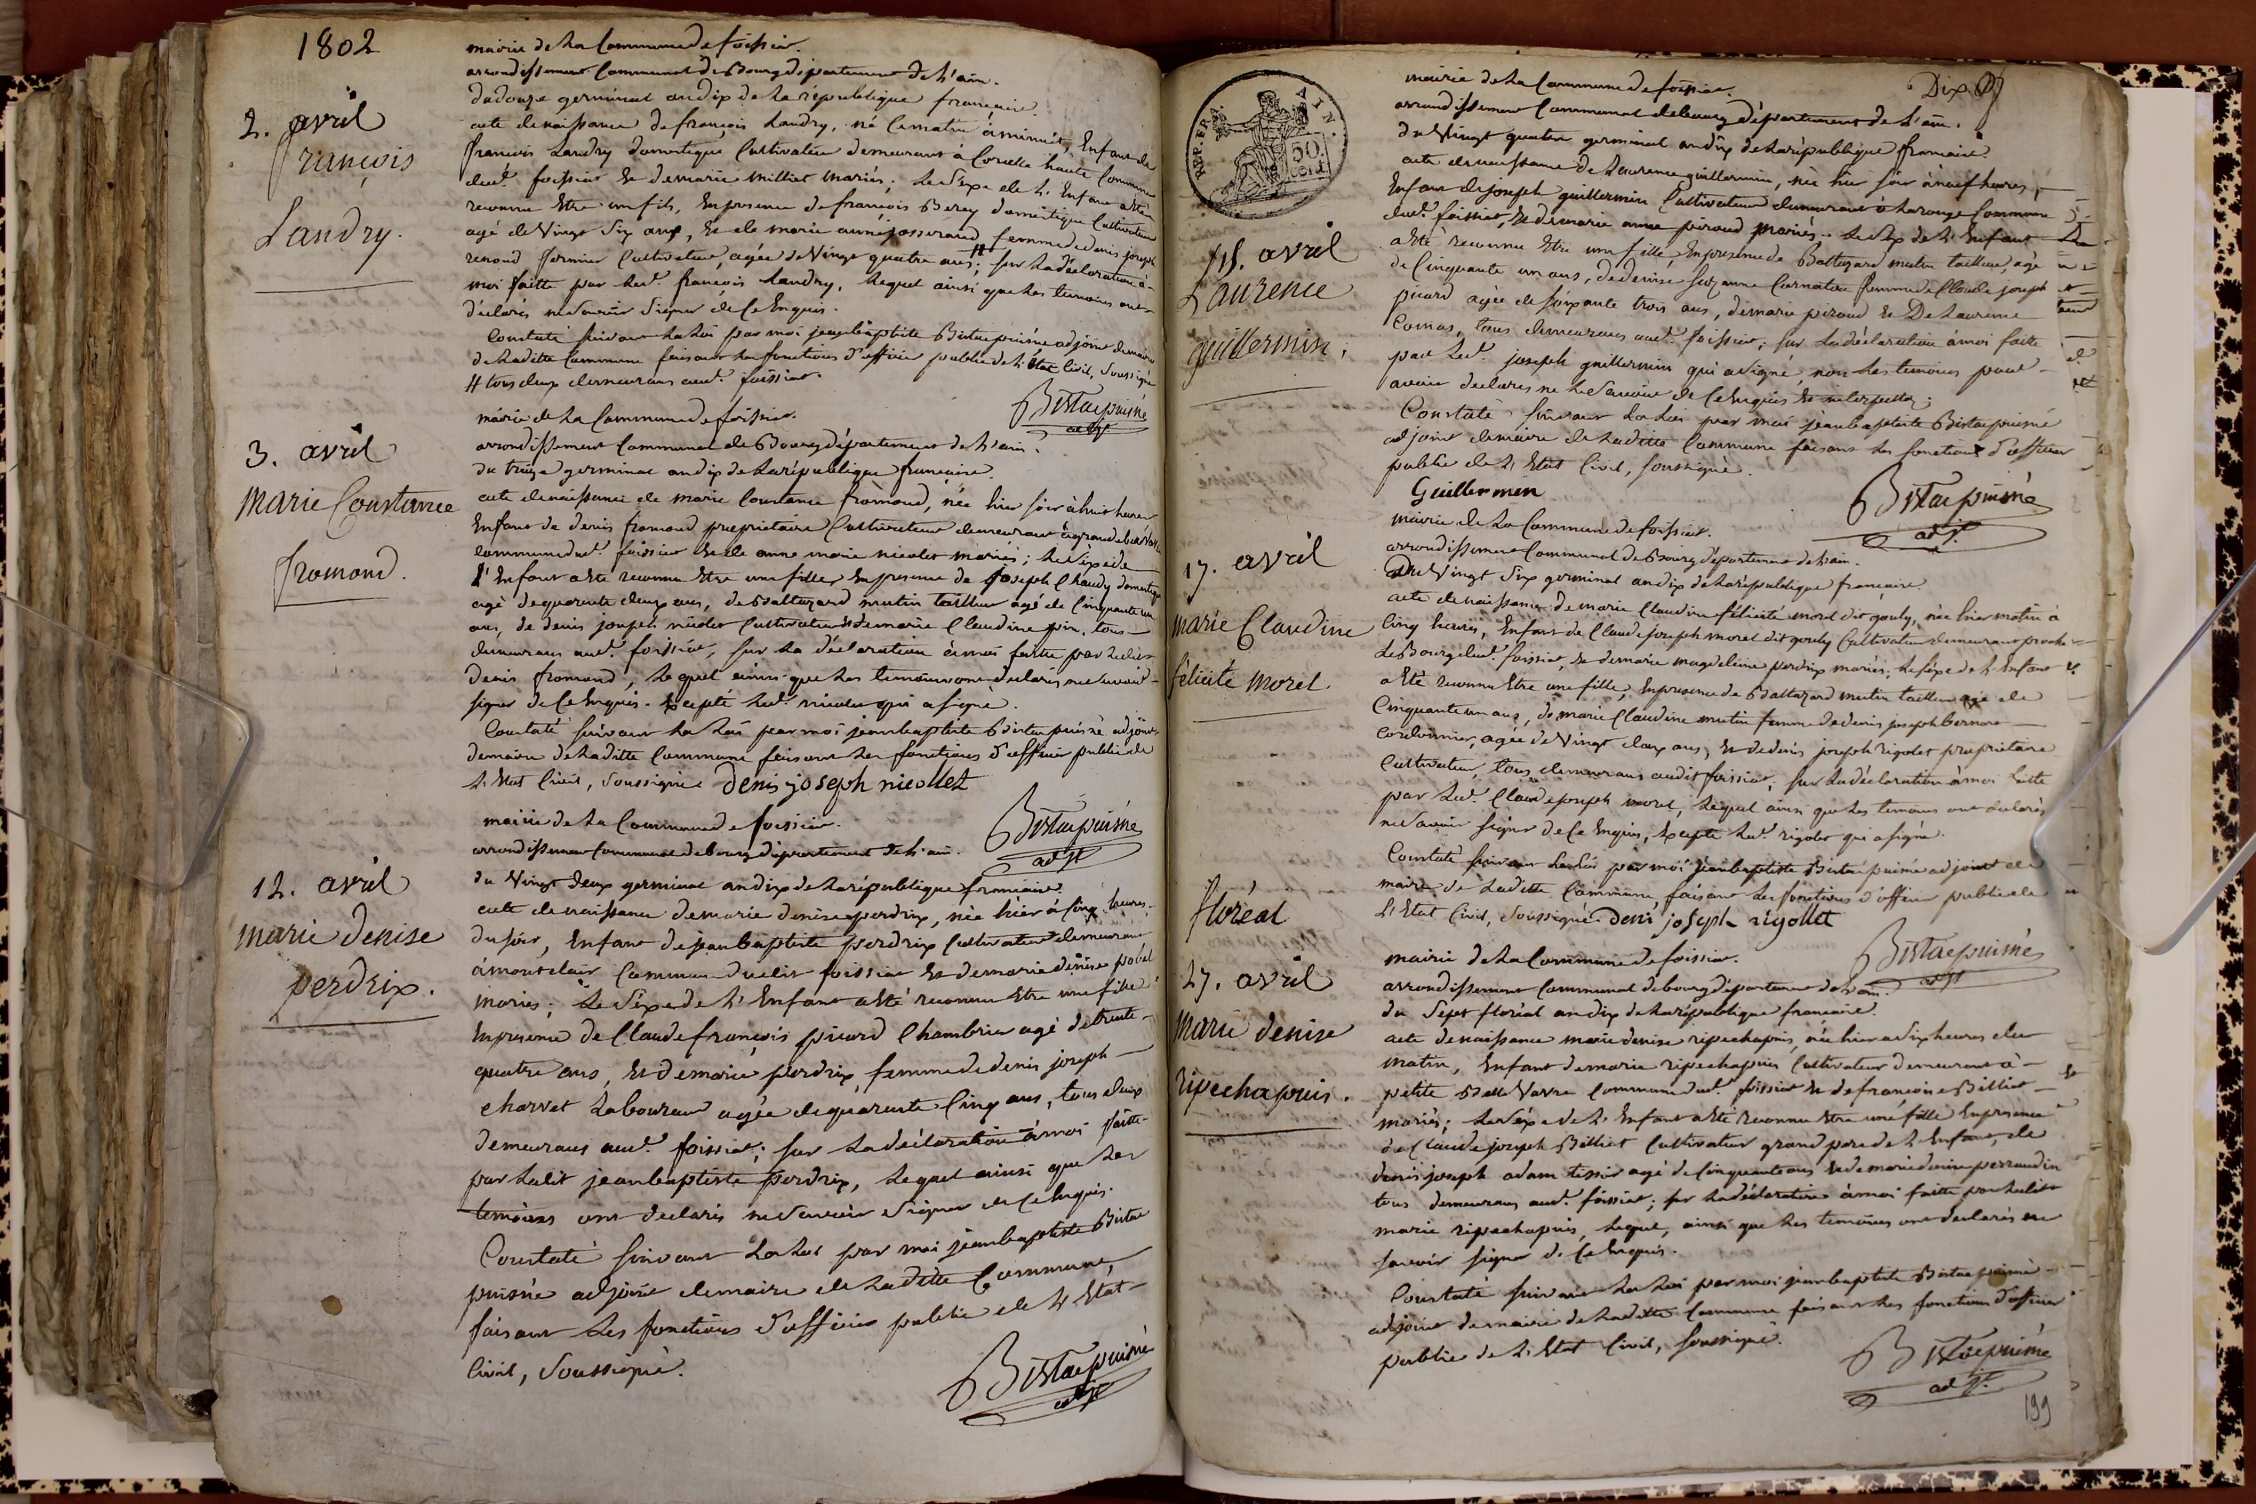 1802
mairie de la Commune de foissiat.
arrondissement Communal de Bourg département de l'ain.
du douze germinal an dix de la république francaise.
2. avril
françois
Landry.
acte de naissance de francois Landry, né ce matin à minuit, Enfant de
francois Landry domestique Cultivateur demeurant à Corcelle haute Commune
dud. foissiat Et de marie milliet mariés; Le Sexe de L'Enfant a été
reconnu Etre un fils, En presence de françois Berey domestique Cultivateur
agé de Vingt Six ans, Et de marie anne josserand femme de denis joseph
renoud fermier Cultivateur, agée de Vingt quatre ans; # sur la déclaration à
moi faitte par Led. francois Landry, Lequel ainsi que les temoins ont
déclarés ne Savoir Signer de Ce Enquis.
Constaté suivant La Loi par moi jeanbaptiste Bistac puisné adjoint de maire
de Laditte Commune faisant les fonctions d'officier public de L'État Civil, Soussigné
# tous deux demeurans aud. foissiat.
Bistac puisné
adjt
mairie de La Commune de foissiat.
arrondissement Communal de Bourg département de L'ain.
du treize germinal an dix de La république francaise.
3. avril
Marie Constance
fromond.
acte de naissance de marie Constance fromond, née hier soir à huit heures
Enfant de denis fromond propriétaire Cultivateur demeurant à grande
commune dud. foissiat Et de anne marie nicolet mariés; Le Sexe de
L'Enfant a Eté reconnu Etre une fille, En presence de joseph Chaudy domestique
agé de quarante deux ans, de Baltazard mutin tailleur agé de Cinquante un
ans, de denis joseph nicolet Cultivateur Et de marie Claudine pin, tous
demeurans aud. foissiat, sur La déclaration à moi faitte par Ledit
Denis fromond, Lequel ainsi que les temoins ont déclarés ne Savoir
signer de Ce Enquis. Excepté Led. nicolet qui a signé.
Constaté suivant La Loi par moi jeanbaptiste Bistac puisné adjoint
demaire de Laditte Commune faisant Les fonctions d'officier public de
L'Etat Civil, Soussigné denis joseph nicollet
Bistac puisné
adjt
mairie de La Commune de foissiat.
arrondissement Communal de bourg département de L'ain.
du Vingt deux germinal an dix de La république francaise.
12. avril
Marie denise
perdrix.
acte de naissance de marie denise perdrix, née hier à Cinq heures
du soir, Enfant de jeanbaptiste perdrix Cultivateur demeurant
à montclair Commune dudit foissiat Et de marie denise
mariés; Le Sexe de L'Enfant a Eté reconnu Etre une fille
En presence de Claude françois picard Chambrier agé de trente
quatre ans, Et de marie perdrix, femme de denis joseph
charvet Laboureur agée de quarante Cinq ans, tous deux
demeurans aud. foissiat; sur La déclaration à moi faitte
par Ledit jeanbaptiste perdrix, Lequel ainsi que Les
temoins ont declarés ne Savoir Signer de Ce Enquis.
Constaté suivant La Loi par moi jeanbaptiste Bistac
puisné adjoint demaire de Laditte Commune,
faisant Les fonctions d'officier public de L'Etat
Civil, Soussigné.
Bistac puisné
adjt
REP. FRA.
AIN.
50
CENT
Dix
mairie de La Commune de foissiat.
arrondissement Communal de bourg département de L'ain.
du Vingt quatre germinal an dix de La république francaise.
15. avril
Laurence
guillermin.
acte de naissance de Laurence guillermin, née hier soir à neuf heures,
Enfant de joseph guillermin Cultivateur demeurant à Commune
dud. foissiat, Et de marie anne piroud mariés. Le Sexe de L'Enfant
a Eté reconnu Etre une fille En presence de Baltazard mutin tailleur, agé
de Cinquante un ans, de denise Suzanne Carnateu femme de Claude joseph
picard agée de soixante trois ans, de marie piroud Et De Laurence
Comas, tous demeurans aud. foissiat; sur La déclaration à moi faite
par Led. joseph guillermin qui a signé, non Les temoins pour
avoir declarés ne Le Savoir de Ce Enquis Et interpellés;
Constaté suivant La Loi par moi jeanbaptiste Bistac puisné
adjoint demaire de Laditte Commune faisant Les fonctions d'officier
public de L'Etat Civil, soussigné.
Guillermin
Bistac puisné
adjt
mairie de La Commune de foissiat.
arrondissement Communal de Bourg département de L'ain.
Du Vingt Six germinal an dix de La république francaise.
17. avril
Marie Claudine
félicité Morel.
acte de naissance de marie Claudine félicité morel dit gouly, née hier matin à
Cinq heures, Enfant de Claude joseph morel dit gouly Cultivateur demeurant proche
Le Bourg dud. foissiat, Et de marie magdeleine perdrix mariés; Le Sexe de L'Enfant
a Eté reconnu Etre une fille, En presence de Baltazard mutin tailleur agé de
Cinquante un ans, de marie Claudine mutin femme de denis joseph bernard
cordonnier, agée de Vingt deux ans, Et de denis joseph rigolet propriétaire
Cultivateur, tous demeurans audit foissiat, sur La déclaration à moi faitte
par Led. Claude joseph morel, Lequel ainsi que Les temoins ont declarés
ne Savoir signer de Ce Enquis, Excepté Led. rigolet qui a signé.
Constaté suivant La Loi par moi jeanbaptiste Bistac puisné adjoint de
maire de Laditte Commune, faisant Les fonctions d'officier public de
L'Etat Civil, Soussigné denis joseph rigollet
Bistac puisné
adjt
floréal
mairie de La Commune de foissiat.
arrondissement Communal de bourg département de L'ain.
du Sept floréal an dix de La république francaise.
27. avril
Marie denise
ripechapuis.
acte de naissance marie denise ripechapuis, née hier à dix heures du
matin, Enfant de marie ripechapuis Cultivateur demeurant à
petite Balle Vavre Commune dud. foissiat Et de francoise Billiet
mariés; Le Sexe de L'Enfant a Eté reconnu Etre une fille En presence
de Claude joseph Billiet Cultivateur grand pere de L'Enfant, de
denis joseph adam tissier agé de Cinquante ans Et de marie denise perraudin
tous demeurans aud. foissiat; sur La déclaration à moi faitte par Ledit
marie ripechapuis, Lequel, ainsi que Les temoins ont declarés ne
savoir signer de Ce Enquis.
Constaté suivant La Loi par moi jeanbaptiste Bistac puisné
adjoint demaire de Laditte Commune faisant Les fonctions d'officier
public de L'Etat Civil, soussigné.
Bistac puisné
adjt
199